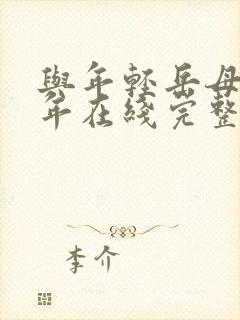 與年輕岳母
年在綫完整
李介